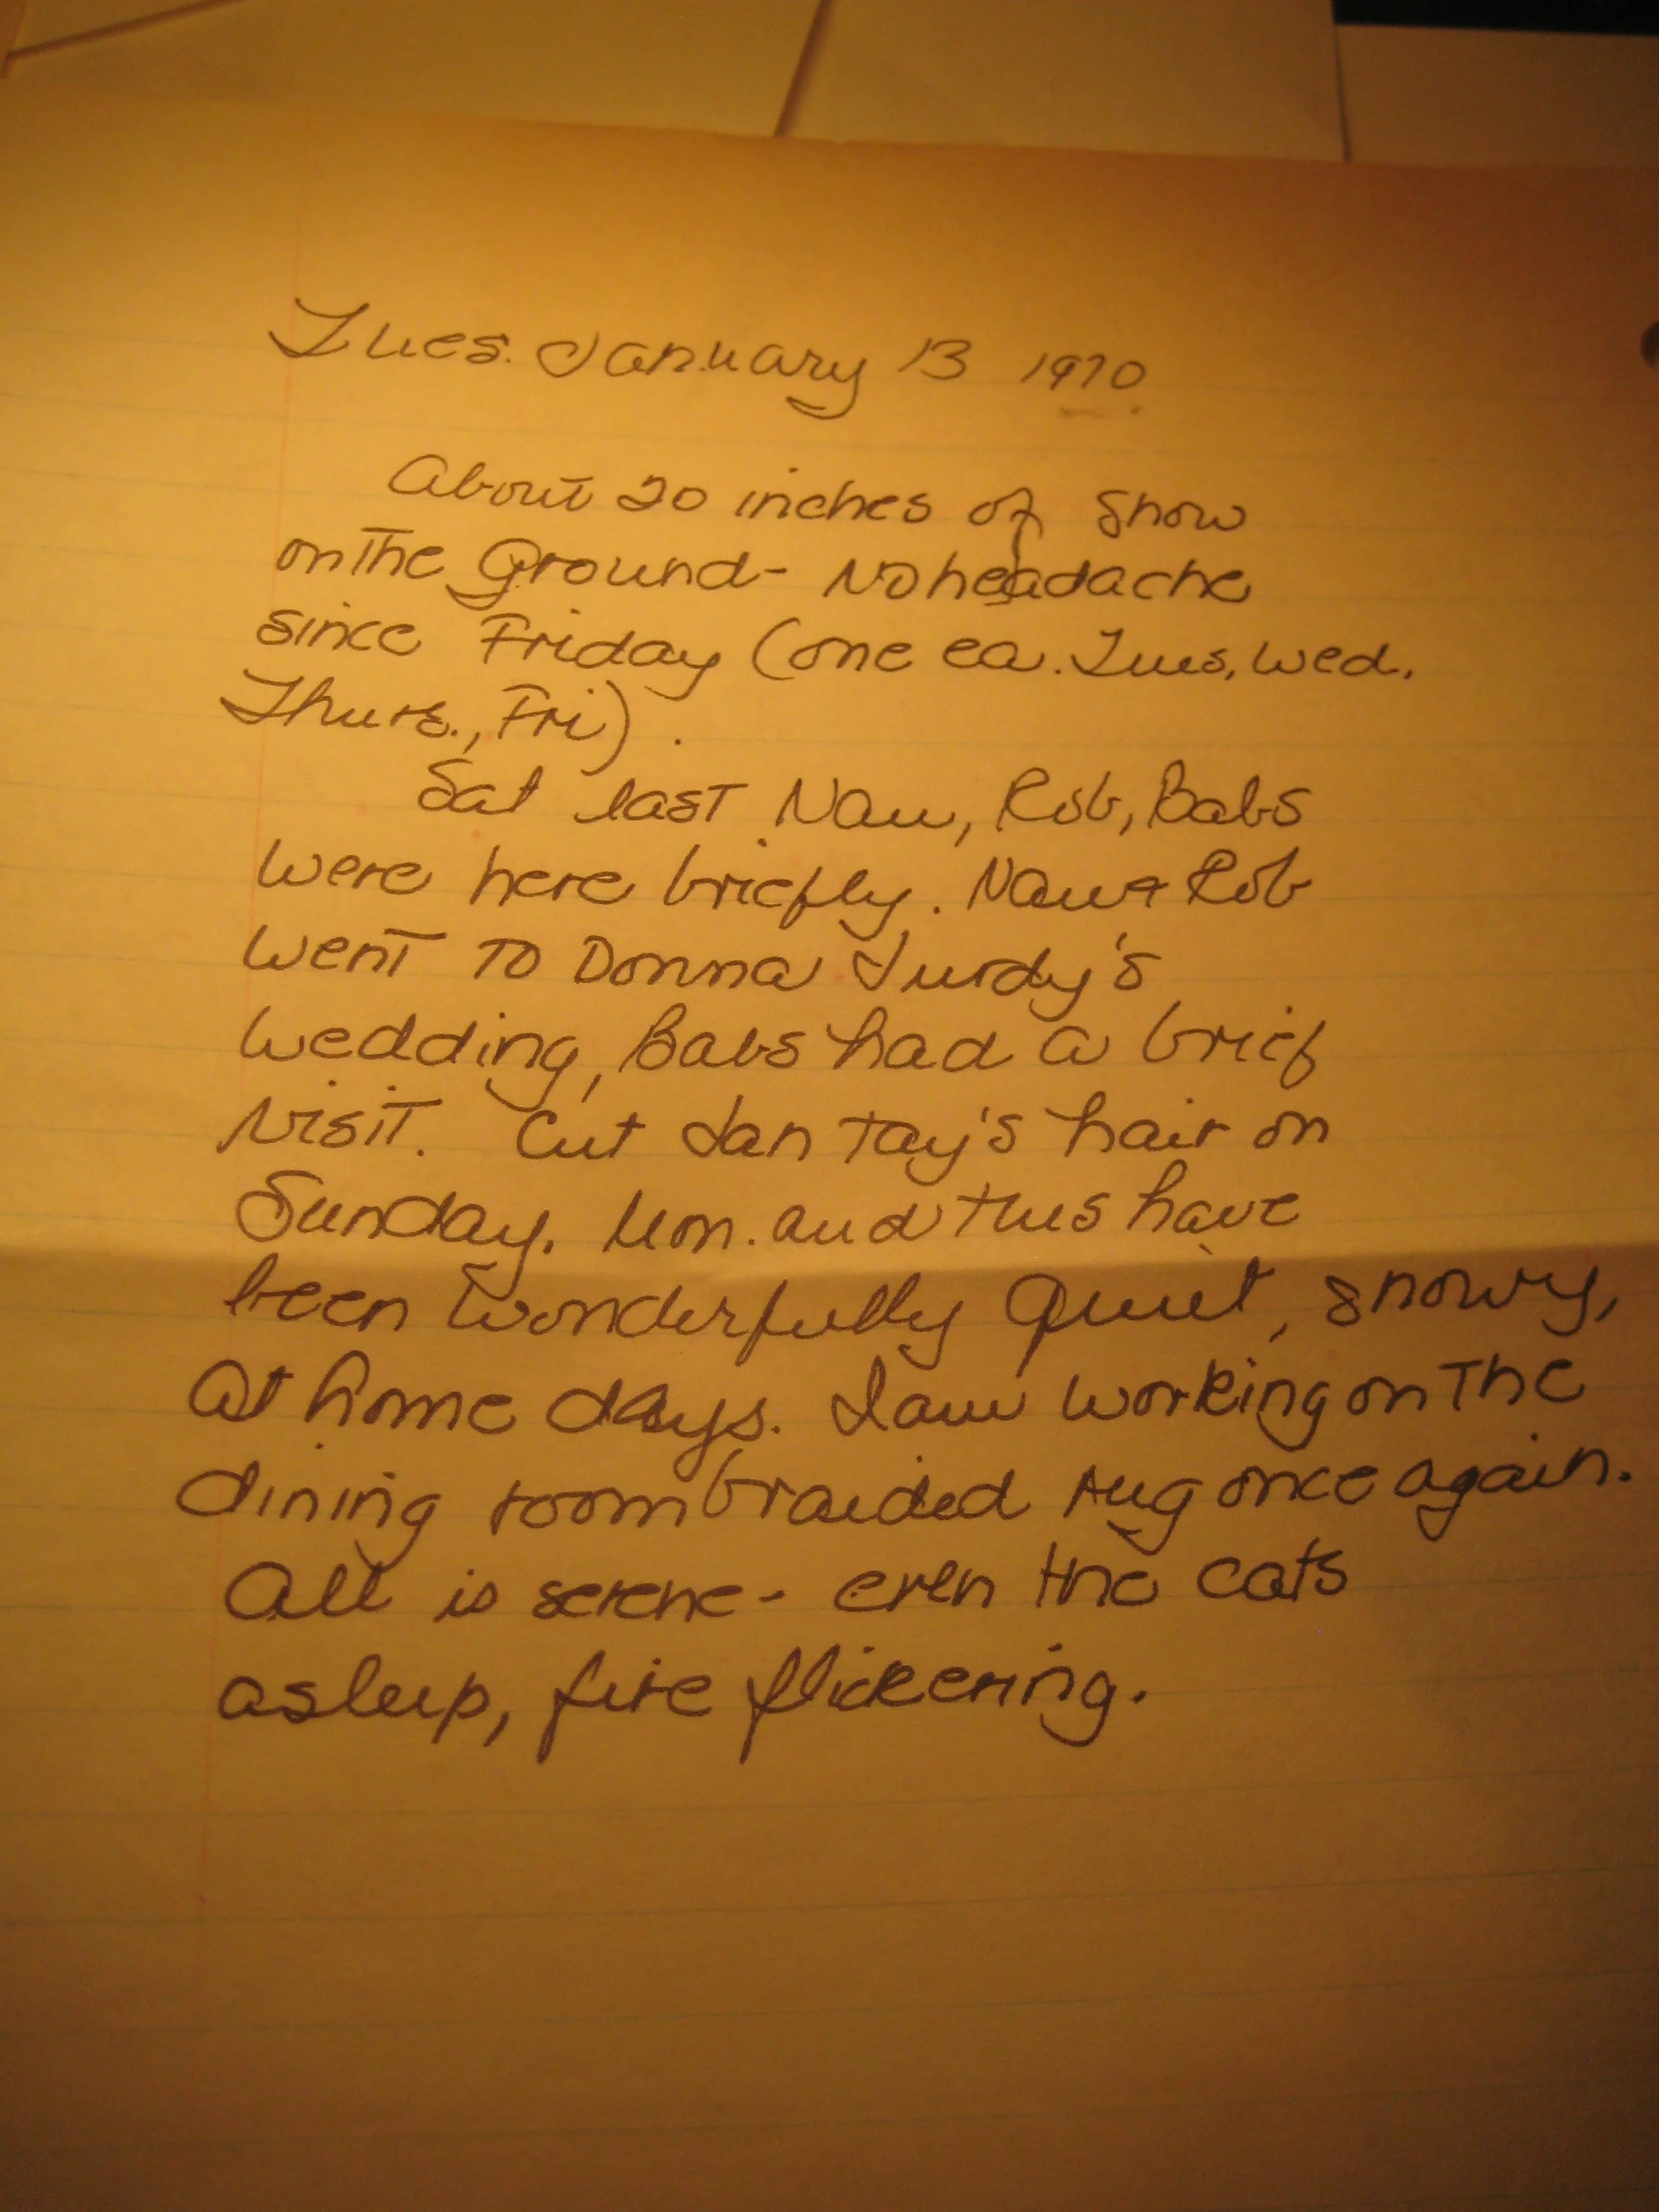 Tues. January 13 1970
About 20 inches of snow
on the ground - No headache
since Friday (one ea. Tues, Wed.
Thurs., Fri).
Sat last Nan, Rob, Babs
were here briefly. Nan & Rob
went to Donna
wedding, Babs had a brief
visit. Cut Jan Tay's hair on
Sunday. Mon. and this have
been wonderfully quiet, snowy,
at home days. I am working on the
dining room braided rug once again.
All is serene - even the cats
asleep, fire flickering.